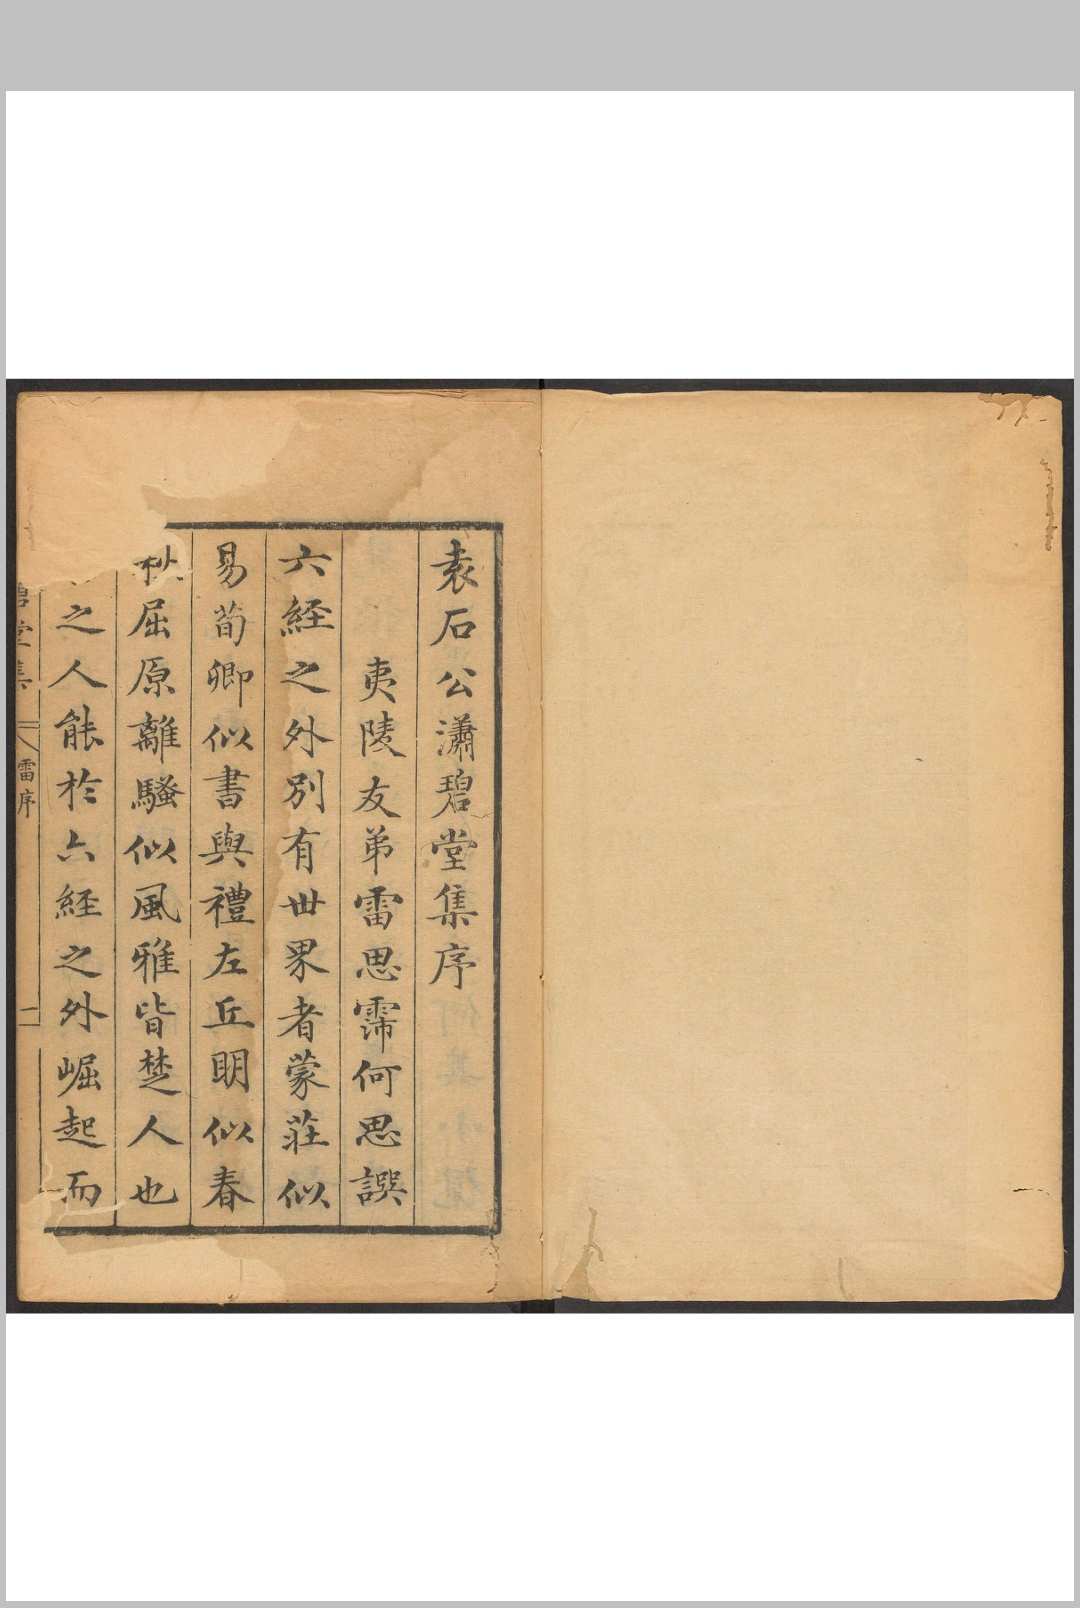 袁石公瀟碧堂集序
夷陵友弟雷思霈何思譔
六経之外別有世界者蒙莊似
易荀卿似書與禮左丘明似春
秋屈原離騷似風雅皆楚人也
之人能於六経之外崛起而
碧堂集
雷序
一